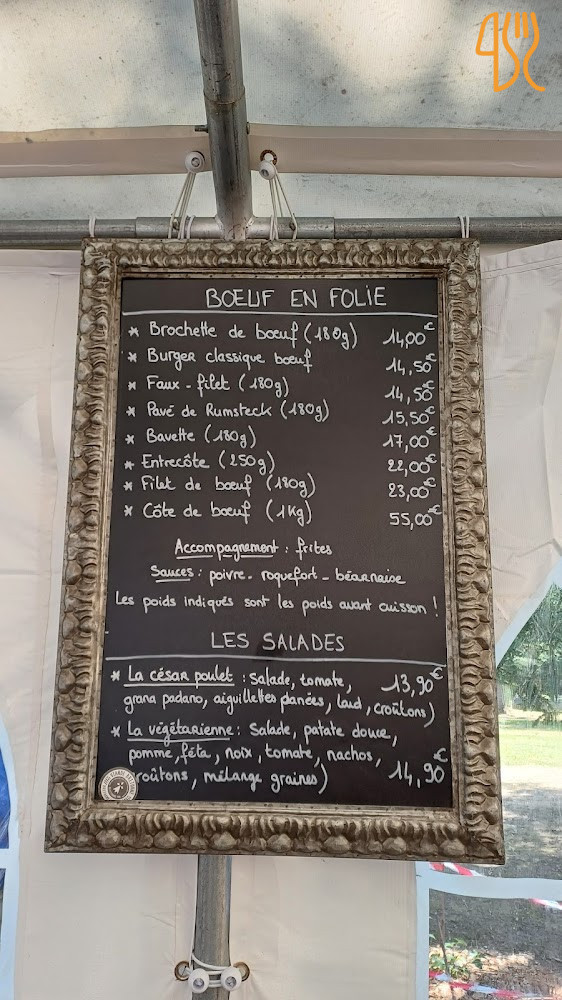 BOEUF EN FOLIE
* Brochette de boeuf (180g) 14,00€
* Burger classique boeuf 14,50€
* Faux-filet (180g) 14,50€
* Pavé de Rumsteck (180g) 15,50€
* Bavette (180g) 17,00€
* Entrecôte (250g) 22,00€
* Filet de boeuf (180g) 23,00€
* Côte de boeuf (1Kg) 55,00€
Accompagnement : frites
Sauces : poivre - roquefort - béarnaise
Les poids indiqués sont les poids avant cuisson !
LES SALADES
* La césar poulet : Salade, tomate, 13,90€
grana padano, aiguillettes panées, lard, croûtons)
* La végétarienne : Salade, patate douce,
pomme, féta, noix, tomate, nachos,
croûtons, mélange graines) 14,90€